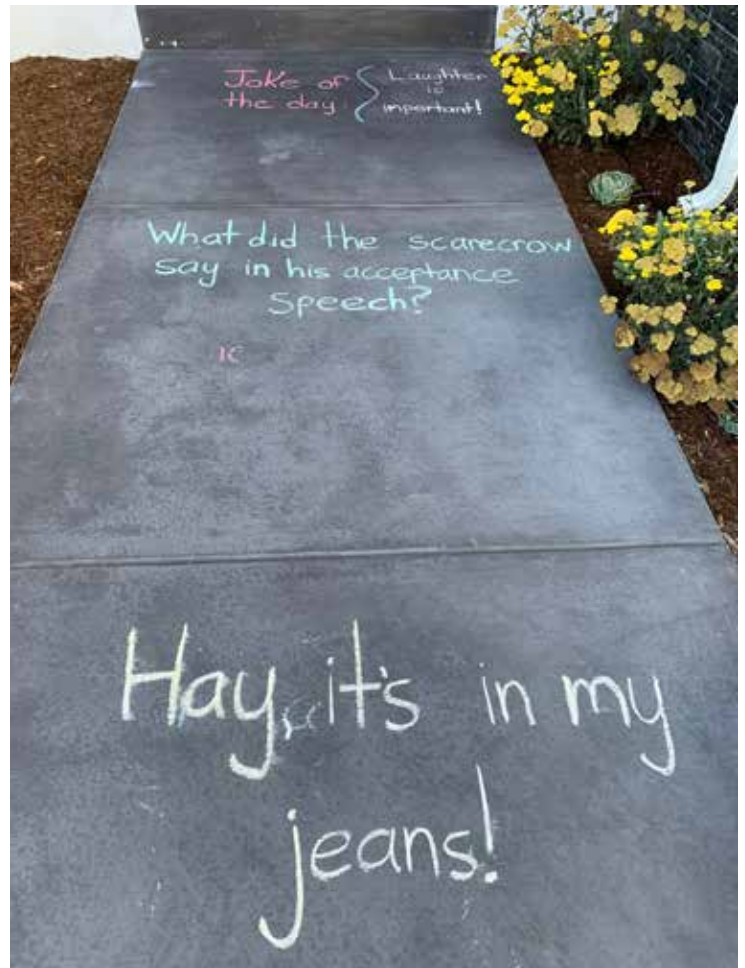 Joke of
the day:
Laughter
is
important!
What did the scarecrow
say in his acceptance
speech?
Hay, it's in my
jeans!